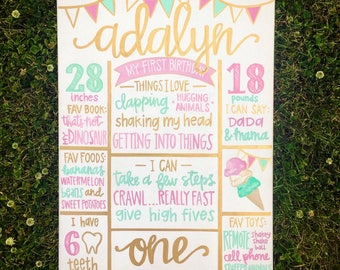 adalyn
MY FIRST BIRTHDAY
28
inches
FAV BOOK:
that's not
my DINOSAUR
FAV FOODS:
BANANAS
WATERMELON
beans and
SWEET POTATOES
I have
6
teeth
THINGS I LOVE
clapping HUGGING
ANIMALS
shaking my head
GETTING INTO THINGS
I CAN
take a few steps
CRAWL...REALLY FAST
give high fives
one
18
pounds
I CAN SAY:
DADA
& mama
FAV TOYS:
REMOTE
cell phone